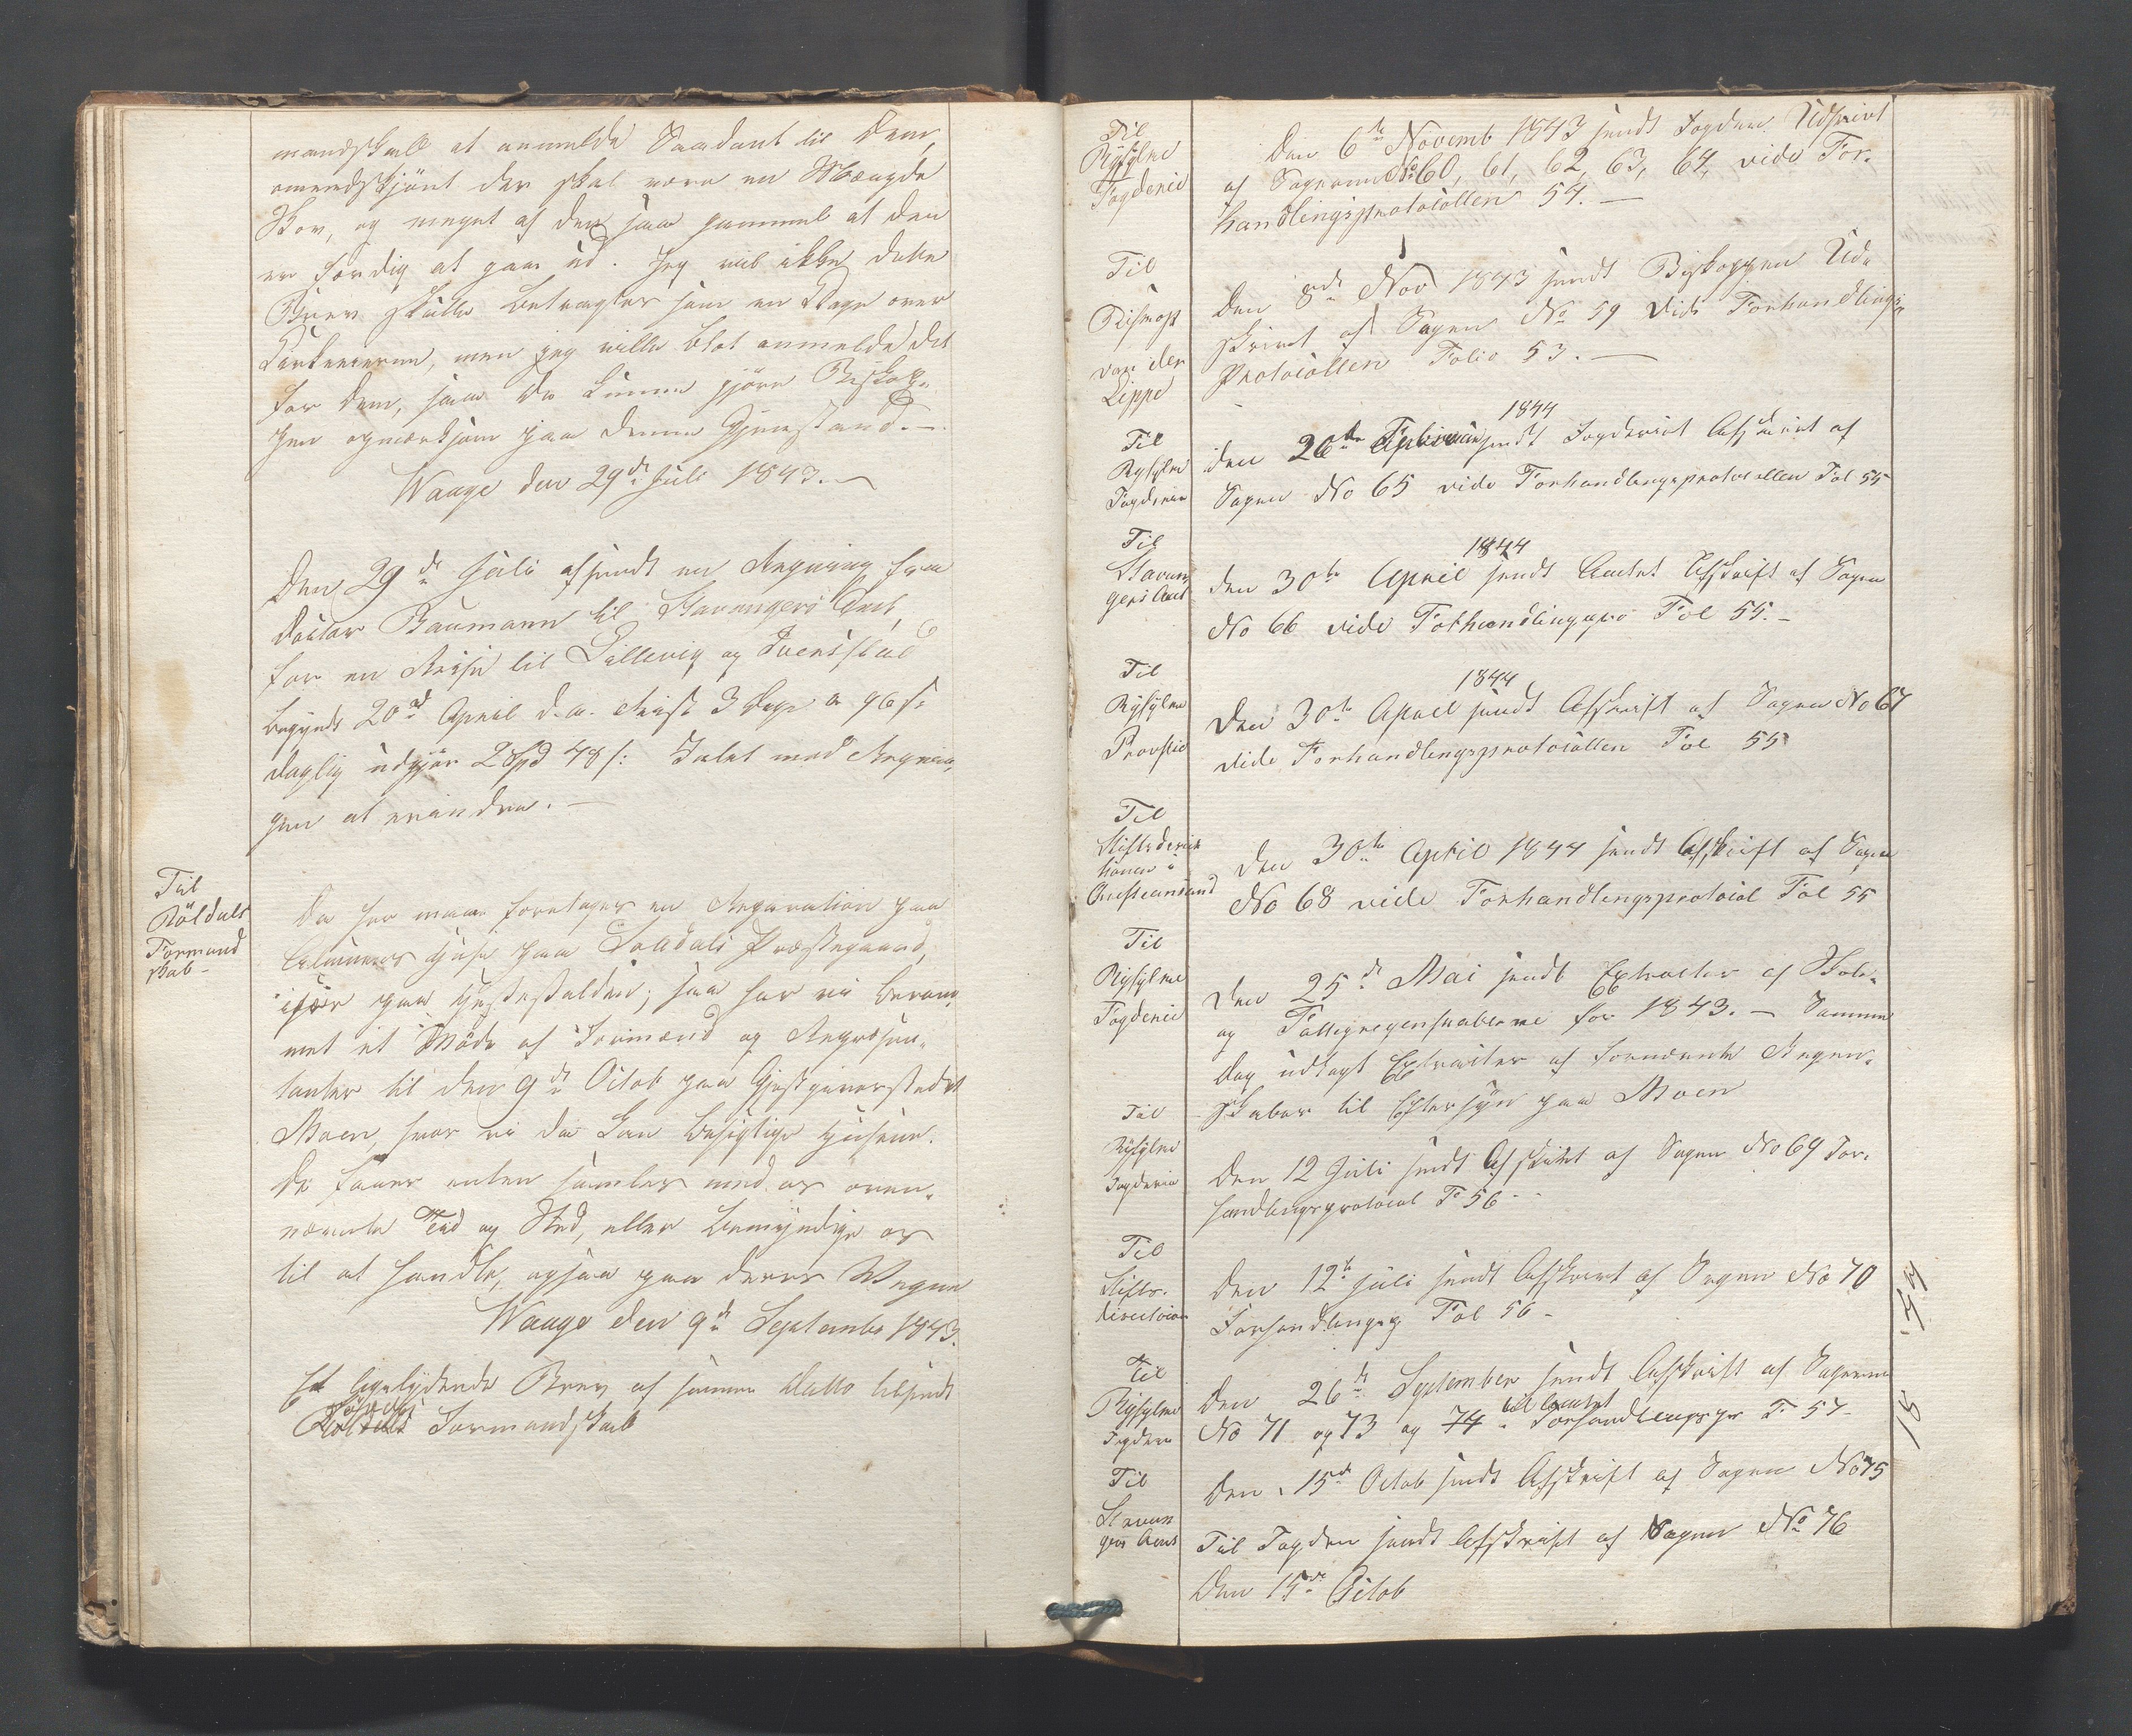 mandskab at anmelde Saadant til Dem,
omendskjønt der skal være en Mængde
Skov, og meget af den saa gammel at den
er færdig at gaa ud. Jeg vil ikke dette
Brev skulle betragtes som en Klage over
men jeg vilde blot anmelde det
for Dem, saa De kunne gjøre Biskop-
pen opmærksom paa denne Gjenstand.-
Waage den 29de Juli 1843.
Den 29de Juli afsendt en Regning fra
Doctor Baumann til Stavangers Amt,
for en Reise til Lillevig og Svensstad
begyndt 20de April d. a. 3 Dage a 96 s:
daglig udgjør 2 Spd 48 s: Intet mod Regnin-
gen at erindre.-
Til
Röldals
Formand
skab-
Da her maae foretages en Reparation paa
Huse paa Suldals Præstegaard,
især paa Hestestalden; saa har vi beram-
met et Møde af Formænd og Repræsen-
tanter til den 9de Octob paa Gjestgiverstedet
Moen, hvor vi da kan besigtige Husene.
De faaer enten samles med os oven-
nævnte Tid og Sted, eller bemyndige os
til at handle, ogsaa paa deres Vegne
Waage den 9de Septembr 1843.
Et ligelydende Brev af samme Datto tilsendt
Röldals Formandskab
Til
Rÿfÿlke
Fogderie
Den 6te Novemb 1843 sendt Fogden Udskrivt
af Sagerne No 60, 61, 62, 63, 64, vide For-
handlingsprotocollen 54.-
Til
Bismop
von der
Lippe
Den 8de Nov 1843 sendt Biskoppen Ud-
skrivt af Sagen No 59 vide Forhandlings-
Protocollen Folio 53.-
Til
Ryfylke
Fogderie
1844
den 26de Februar sendt Fogderiet Afskrivt af
Sagen No 65 vide Forhandlingsprotocollen Fol 55
Til
Stavan
gers Amt
1844
den 30te April sendt Amtet Afskrift af Sagen
No 66 vide Forhandlingspro Fol 55.-
Til
Ryfylke
Provstie
1844
Den 30te April sendt Afskrift af Sagen No 67
vide Forhandlingsprotocollen Fol 55
Til
Stiftsdirek
tionen i
Christiansand
Den 30te April 1844 sendt Afskrift af Sagen
No 68 vide Forhandlingsprotocol Fol 55
Til
Ryfylke
Fogderie
Den 25de Mai sendt Extracter af Skole-
og Fattigregenskaberne for 1843.- Samme
Dag udtagt Extracter af Regen-
skaber til Eftersyn paa Moen
Til
Ryfylke
Fogderie
Den 12 Juli sendt Afskrivt af Sagen No 69 For-
handlingsprotocol F 56 --
Til
Stifts-
directionen
Den 12te Juli sendt Afskrivt af Sagen No 70
Forhandlingsp Fol 56-
Til
Ryfylke
Fogderie
Den 26de September sendt Afskrift af Sagerne
til Amtet
No 71 og 73 og 74 Forhandlingspr F 57-
Til
Stavan
gers Amt
Den 15de Octob sendt Afskrift af Sagen No 75
Til Fogden sendt Afskrift af Sagen No 76
Den 15de Octob